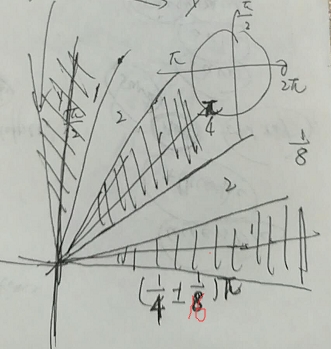 π/2
π
2π
1
π/2
2
π/4
1/8
2
1
(1/4 ± 1/8)π
16